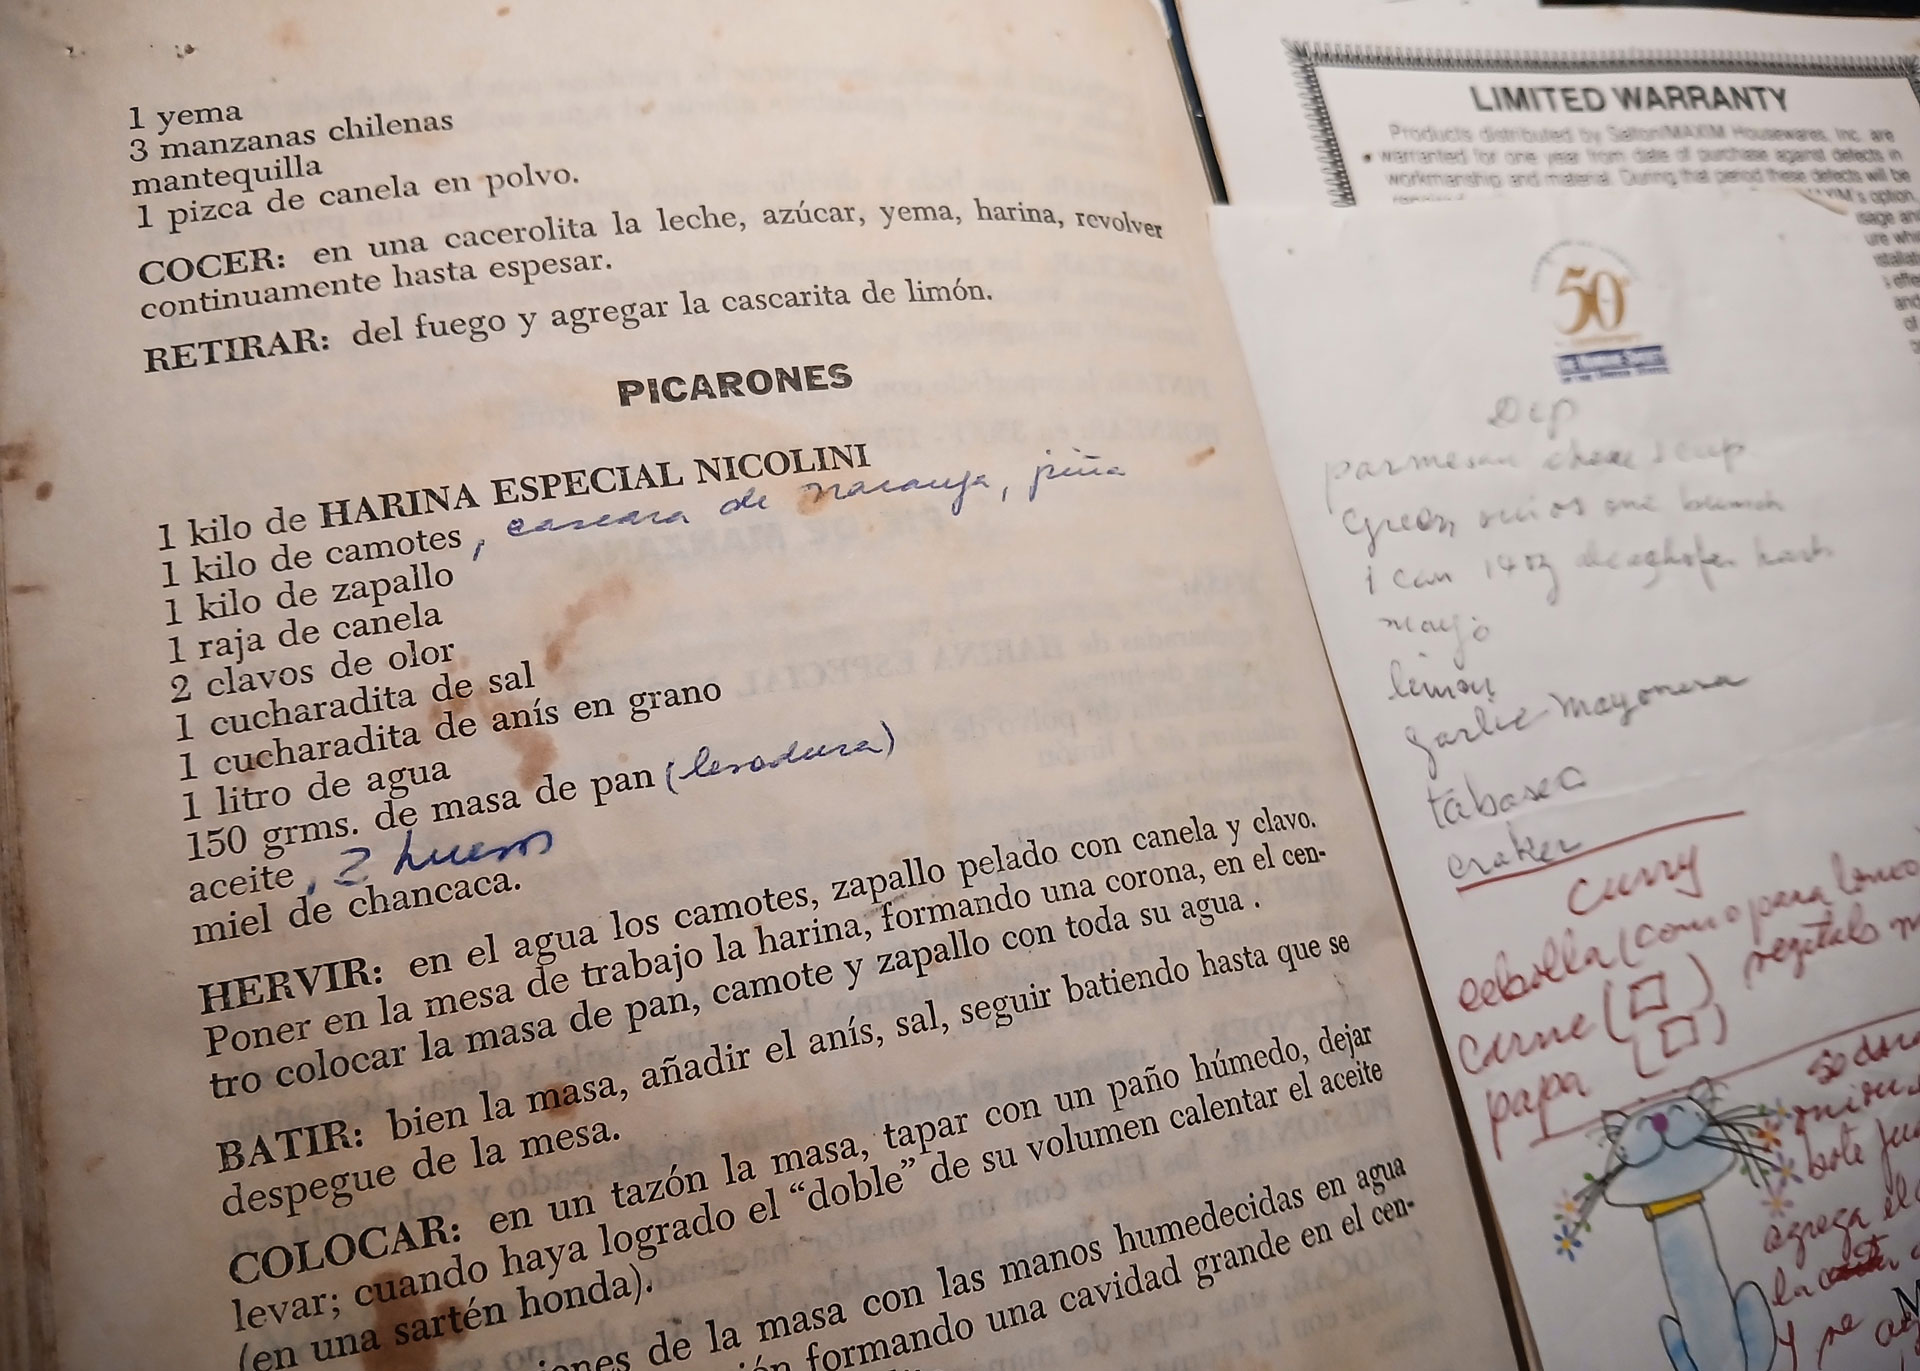 1 yema
3 manzanas chilenas
mantequilla
1 pizca de canela en polvo.
COCER: en una cacerolita la leche, azúcar, yema, harina, revolver
continuamente hasta espesar.
RETIRAR: del fuego y agregar la cascarita de limón.
PICARONES
1 kilo de HARINA ESPECIAL NICOLINI
1 kilo de camotes, cascara de naranja, piña
1 kilo de zapallo
1 raja de canela
2 clavos de olor
1 cucharadita de sal
1 cucharadita de anís en grano
1 litro de agua
150 grms. de masa de pan (levadura)
aceite, 2 huevos
miel de chancaca.
HERVIR: en el agua los camotes, zapallo pelado con canela y clavo.
Poner en la mesa de trabajo la harina, formando una corona, en el cen-
tro colocar la masa de pan, camote y zapallo con toda su agua .
BATIR: bien la masa, añadir el anís, sal, seguir batiendo hasta que se
despegue de la mesa.
COLOCAR: en un tazón la masa, tapar con un paño húmedo, dejar
levar; cuando haya logrado el "doble" de su volumen calentar el aceite
(en una sartén honda).
de la masa con las manos humedecidas en agua
formando una cavidad grande en el cen-
LIMITED WARRANTY
Products distributed by Salton/MAXIM Housewares, Inc. are
warranted for one year from date of purchase against defects in
workmanship and material. During that period these defects will be
option,
and
of
50
Dip
parmesan chese 1 cup
Green onios one bunch
1 can 14 oz
mayo
limón
garlic mayonesa
tabasco
craker
curry
cebolla (como para lomo
carne
vegetals
papa
agrega el
la
y